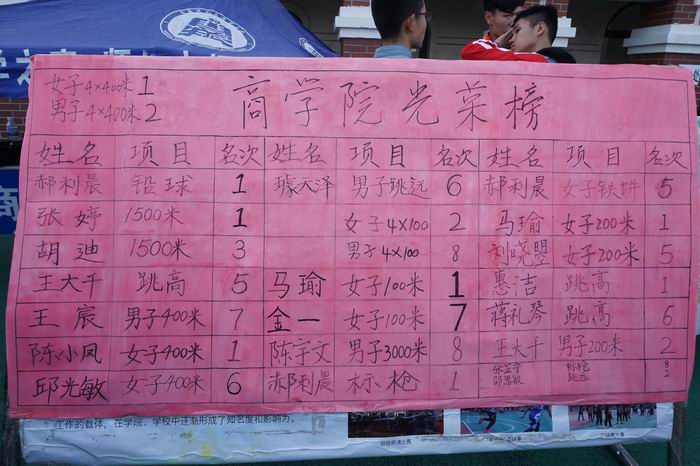 女子4×400米 1
男子4×400米 2
商学院光荣榜
姓名 项目 名次 姓名 项目 名次 姓名 项目 名次
郝利晨 铅球 1 璩天泽 男子跳远 6 郝利晨 女子铁饼 5
张婷 1500米 1 女子4×100 2 马瑜 女子200米 1
胡迪 1500米 3 男子4×100 8 刘晓曌 女子200米 5
王大千 跳高 5 马瑜 女子100米 1 惠洁 跳高 1
王宸 男子400米 7 金一 女子100米 7 蒋礼琴 跳高 6
陈小凤 女子400米 1 陈宇文 男子3000米 8 王大千 男子200米 2
邱光敏 女子400米 6 郝利晨 标枪 1
标枪 8
工作的载体，在学院、学校中逐渐形成了知名度和影响力。